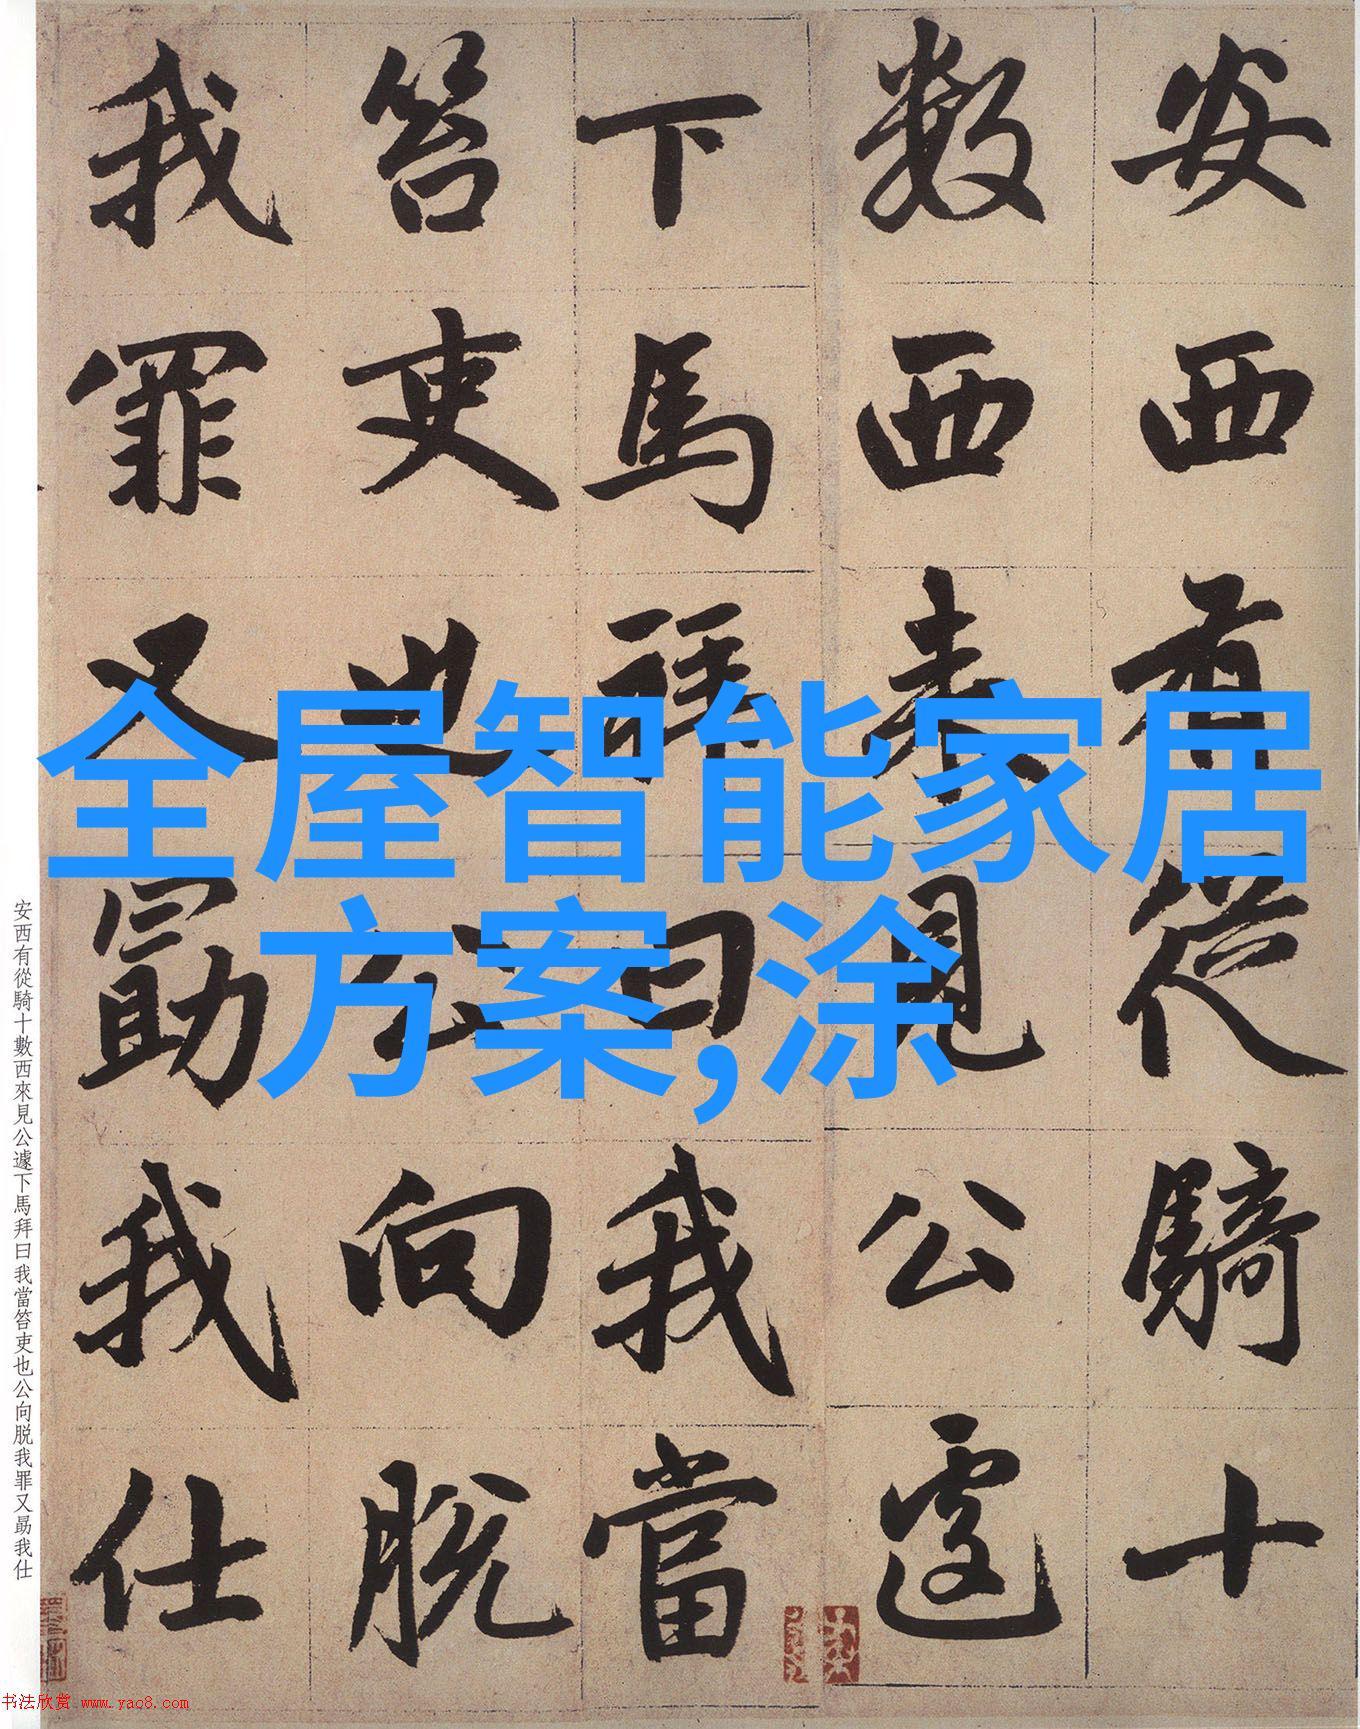 安西有從騎十
數西來見公遽
下馬拜曰我當
笞吏也公向脱
我罪又勗我仕
全屋智能家居
方案,涂
安西有從騎十數西來見公遽下馬拜曰我當笞吏也公向脱我罪又勗我仕
书法欣赏 www.yac8.com